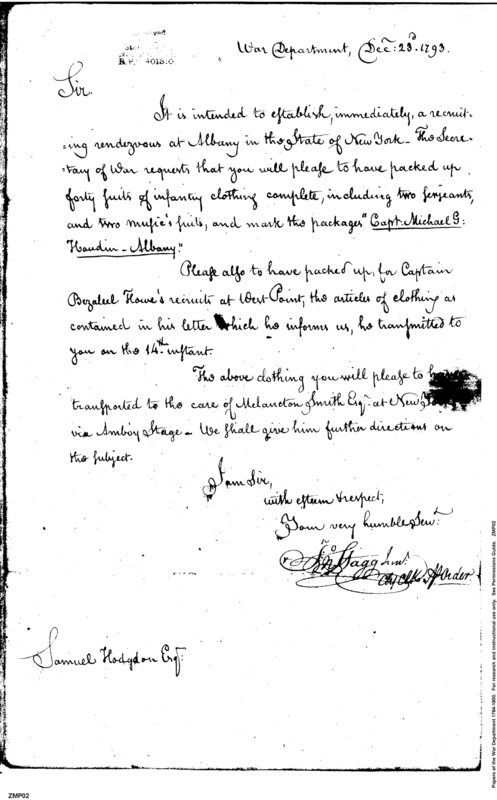 War Department, Decr: 23d. 1793.
Sir.
It is intended to establish, immediately, a recruit-
=ing rendezvous at Albany in the State of New York – The Secre-
-tary of War requests that you will please to have packed up
forty suits of infantry clothing complete, including two serjeants,
and two music's suits, and mark the packages "Capt. Michael G:
Houdin – Albany."
Please also to have packed up, for Captain
Bezaleel Howe's recruits at West Point, the articles of clothing as
contained in his letter which he informs us, he transmitted to
you on the 14th instant.
The above clothing you will please to have
transported to the care of Melancton Smith Esqr. at New York
via Amboy Stage – We shall give him further directions on
the subject.
I am Sir,
with esteem & respect,
Your very humble Servt.
Jno Stagg Junr.
Samuel Hodgdon Esqr:
Papers of the War Department 1784-1800. For research and instructional use only. See Permissions Guide. ZMP02
ZMP02